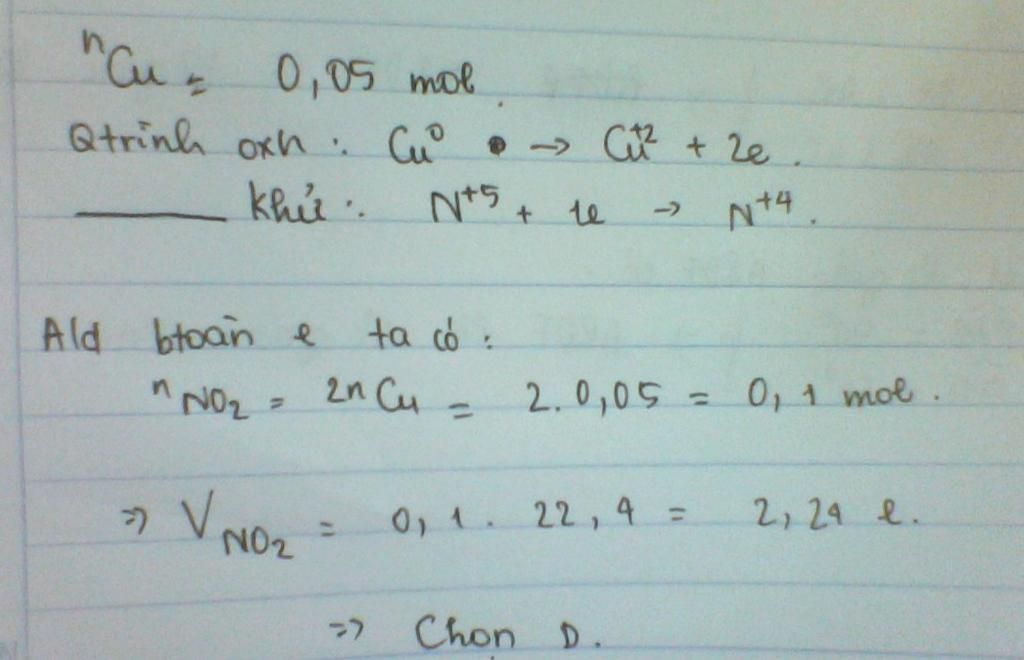 nCu = 0,05 mol.
Qtrình oxh : Cu⁰ → Cu⁺² + 2e.
——— khử : N⁺⁵ + 1e → N⁺⁴.
Ald btoàn e ta có :
nNO₂ = 2nCu = 2. 0,05 = 0,1 mol.
=> VNO₂ = 0,1. 22,4 = 2,24 l.
=> Chọn D.